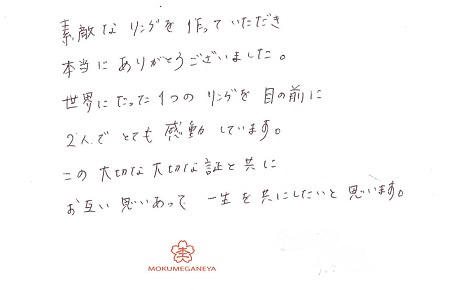 素敵なリングを作っていただき
本当にありがとうございました。
世界にたった1つのリングを目の前に
2人でとても感動しています。
この大切な大切な証と共に
お互い思いあって一生を共にしたいと思います。
MOKUMEGANEYA